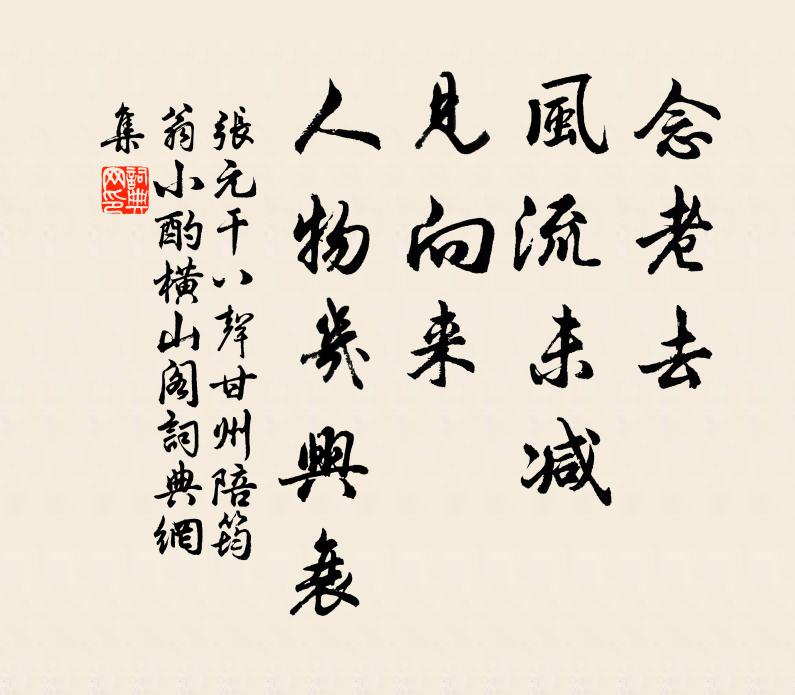 念老去
風流未减
見向来
人物幾興衰
張元干八聲甘州陪筠
翁小酌橫山阁詞典網
集
詞典
网印